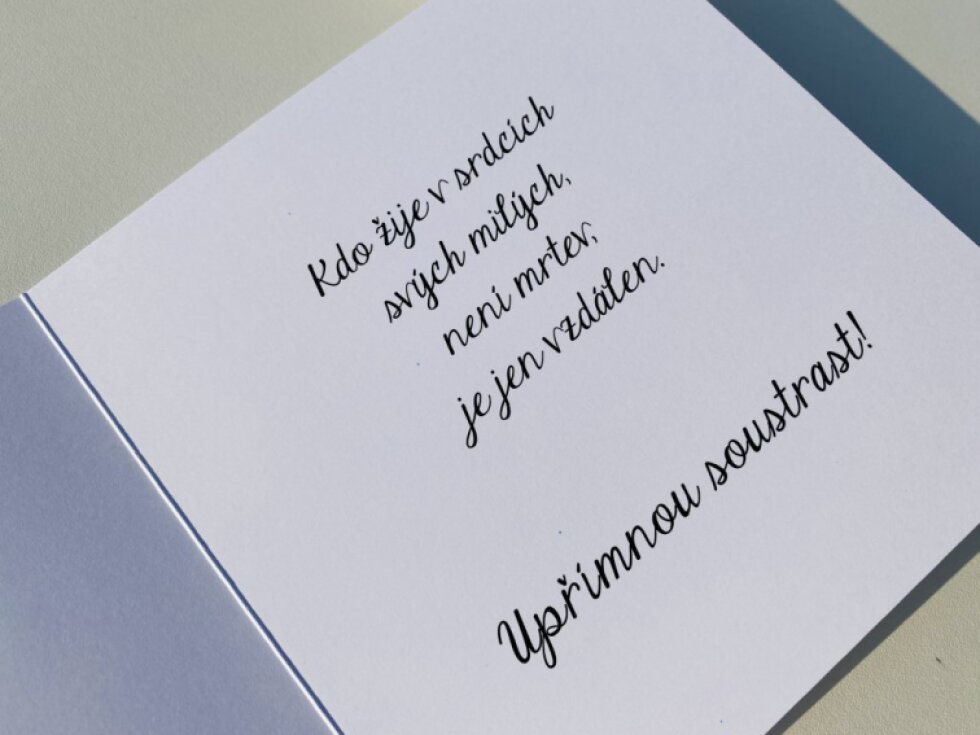 Kdo žije v srdcích
svých milých,
není mrtev,
je jen vzdálen.
Upřímnou soustrast!